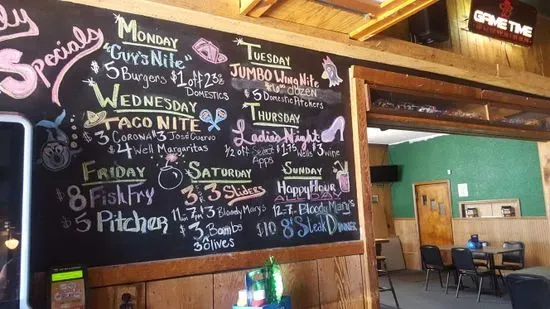 Daily
Specials
MONDAY
"Guy's Nite"
$5 Burgers $1 off 23oz
DOMESTICS
TUESDAY
JUMBO WING Nite
dozen
$5 Domestic Pitchers
WEDNESDAY
TACO NITE
$3 CORONA $3 José Cuervo
$4 Well Margaritas
THURSDAY
Ladies Night
1/2 off Select Apps $1.75 Wells $3 wine
FRIDAY
$8 FISH FRY
$5 PITCHER
SATURDAY
3 for $3 SLIDERS
11am-7pm $3 Bloody Mary's
$3 Bombs
3 Olives
SUNDAY
HAPPY HOUR
ALL DAY
12-7 Bloody Mary's
$10 8oz STEAK DINNER
GAME TIME